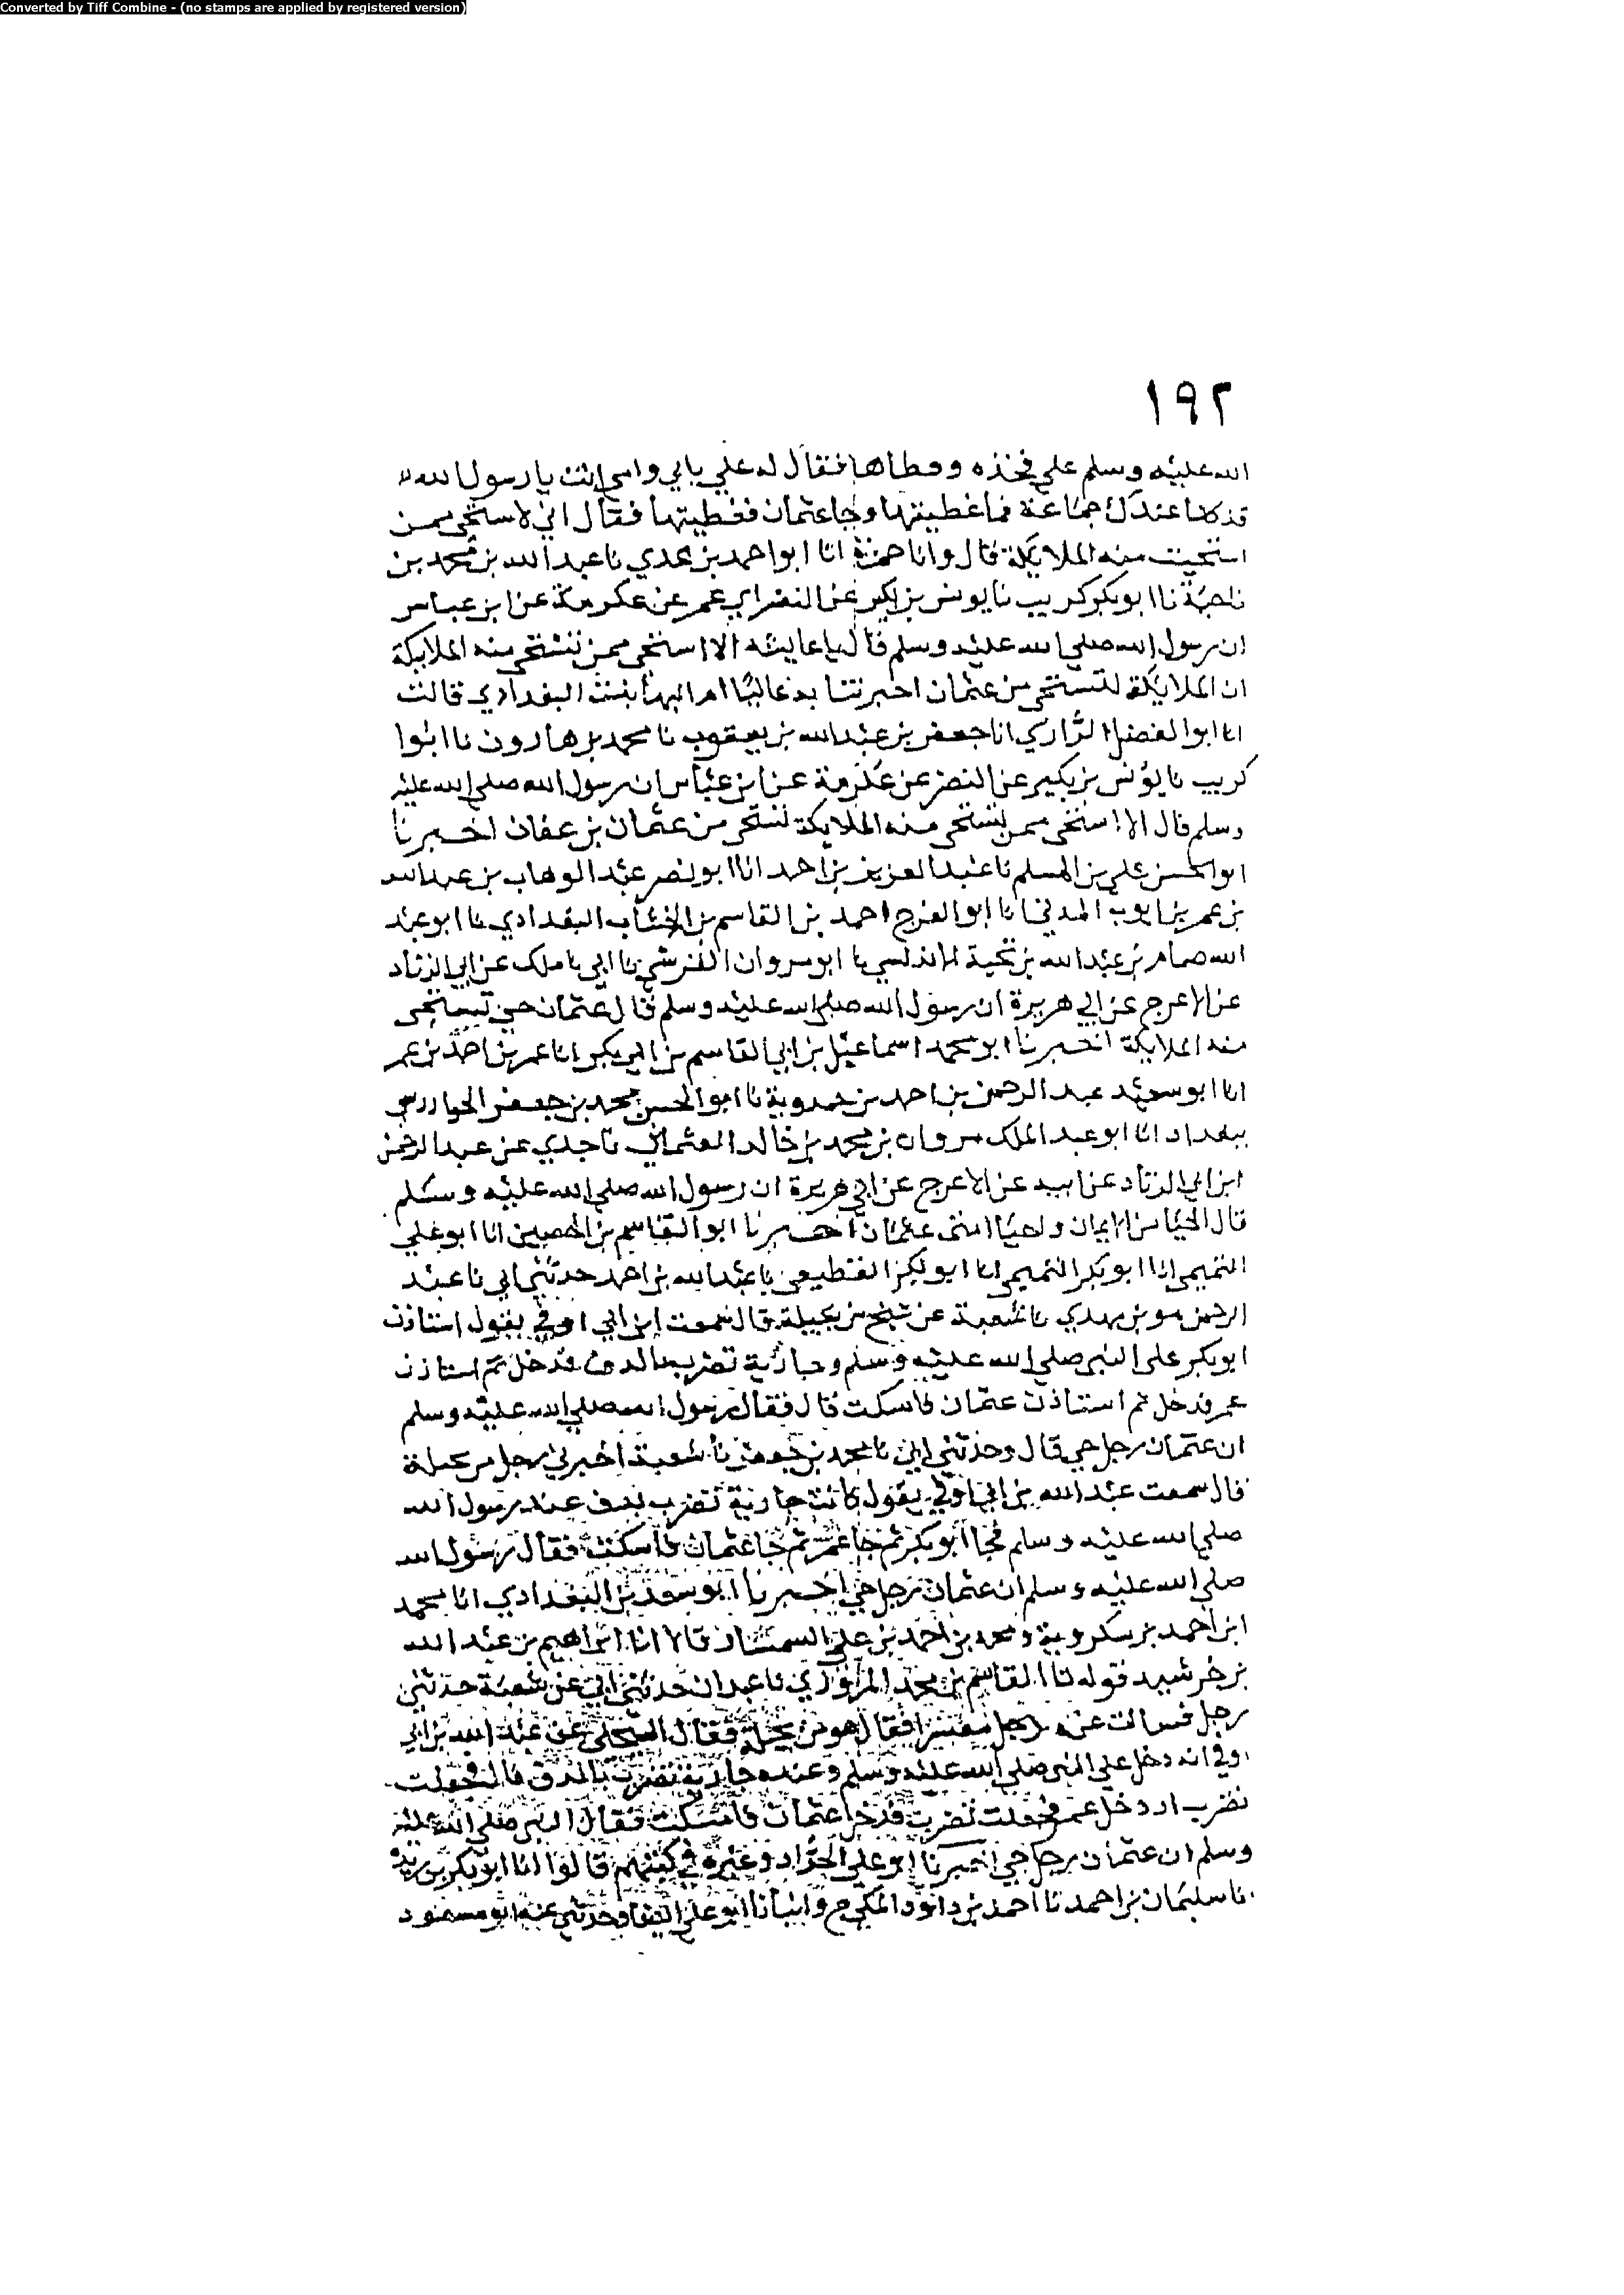 Converted by Tiff Combine - (no stamps are applied by registered version)
١٩٢
الله عليه وسلم على فخذه وغطاها فقال له علي بابي وامي انت يا رسول الله
قد كنا عندك جماعة فما غطيتها وجا عثمان فغطيتها فقال اني لاستحي ممن
استحيت منه الملايكة قال وانا حمزة انا ابو احمد بن عدي نا عبد الله بن محمد بن
ناجية نا ابو بكر كريب نا يونس بن بكير عن النضر ابي عمر عن عكرمة عن ابن عباس
ان رسول الله صلى الله عليه وسلم قال يا عايشه الا استحي ممن تستحي منه الملايكة
ان الملايكة لتستحي من عثمان اخبرتنا به عاليًا ام البها بنت البغدادي قالت
انا ابو الفضل الرازي انا جعفر بن عبد الله بن يعقوب نا محمد بن هارون نا ابوا
كريب نا يونس بن بكير عن النضر عن عكرمة عن ابن عباس ان رسول الله صلى الله عليه
وسلم قال الا استحي ممن تستحي منه الملايكة تستحي من عثمان بن عفان اخبرنا
ابو الحسن علي بن المسلم نا عبد العزيز بن احمد انا ابو نصر عبد الوهاب بن عبد الله
بن عمر بن ايوب المدني انا ابو الفرج احمد بن القاسم بن الخشاب البغدادي نا ابو عبد
الله صمام بن عبد الله بن نجية الاندلسي نا ابو مروان القرشي نا ابي نا ملك عن ابي الزناد
عن الاعرج عن ابي هريرة ان رسول الله صلى الله عليه وسلم قال عثمان حيي تستحي
منه الملايكة اخبرنا ابو محمد اسماعيل بن ابي القاسم بن ابي بكر انا عمر بن احمد بن عمر
انا ابو سعيد عبد الرحمن بن احمد بن حمدوية نا ابو الحسن محمد بن جعفر
ببغداد انا ابو عبد الملك مروان بن محمد بن خالد العثماني نا جدي عن عبد الرحمن
ابن ابي الزناد عن ابيه عن الاعرج عن ابي هريرة ان رسول الله صلى الله عليه وسلم
قال الحيا من الايمان واحيا امتي عثمان اخبرنا ابو القاسم بن الحصين انا ابو علي
التميمي انا ابو بكر التميمي انا ابو بكر القطيعي نا عبد الله بن احمد حدثني ابي نا عبد
الرحمن هو بن مهدي نا شعبة عن شيخ من بجيلة قال سمعت ابن ابي اوفى يقول استاذن
ابو بكر على النبي صلى الله عليه وسلم وجارية تضرب بالدف فدخل ثم استاذن
عمر فدخل ثم استاذن عثمان فامسكت قال فقال رسول الله صلى الله عليه وسلم
ان عثمان رجل حيي قال وحدثني ابي نا محمد بن جعفر نا شعبة اخبرني رجل من بجيلة
قال سمعت عبد الله بن ابي اوفى يقول كانت جارية تضرب بدف عند رسول الله
صلى الله عليه وسلم فجا ابو بكر ثم جا عمر ثم جا عثمان فامسكت فقال رسول الله
صلى الله عليه وسلم ان عثمان رجل حيي اخبرنا ابو سعد بن البغدادي انا محمد
ابن احمد بن سكروية ومحمد بن احمد بن علي السمسار قالا انا ابراهيم بن عبد الله
بن خرشيد قوله نا القاسم بن محمد المروزي نا عبدان حدثني ابي عن شعبة حدثني
رجل فسالت عنه رجل فقال هو من بجيلة فقال البجلي عن عبد الله بن ابي
اوفي انه دخل على النبي صلى الله عليه وسلم وعنده جارية تضرب بالدف قال فجعلت
تضرب اذ دخل عمر فجعلت تضرب فدخل عثمان فامسكت فقال النبي صلى الله عليه
وسلم ان عثمان رجل حيي اخبرنا ابو علي الحداد وغيره في كتبهم قالوا انا ابو بكر بن ريذه
نا سليمان بن احمد نا احمد بن داوود المكي ح وانبانا ابو علي ايضا وحدثني عنه ابو مسعود